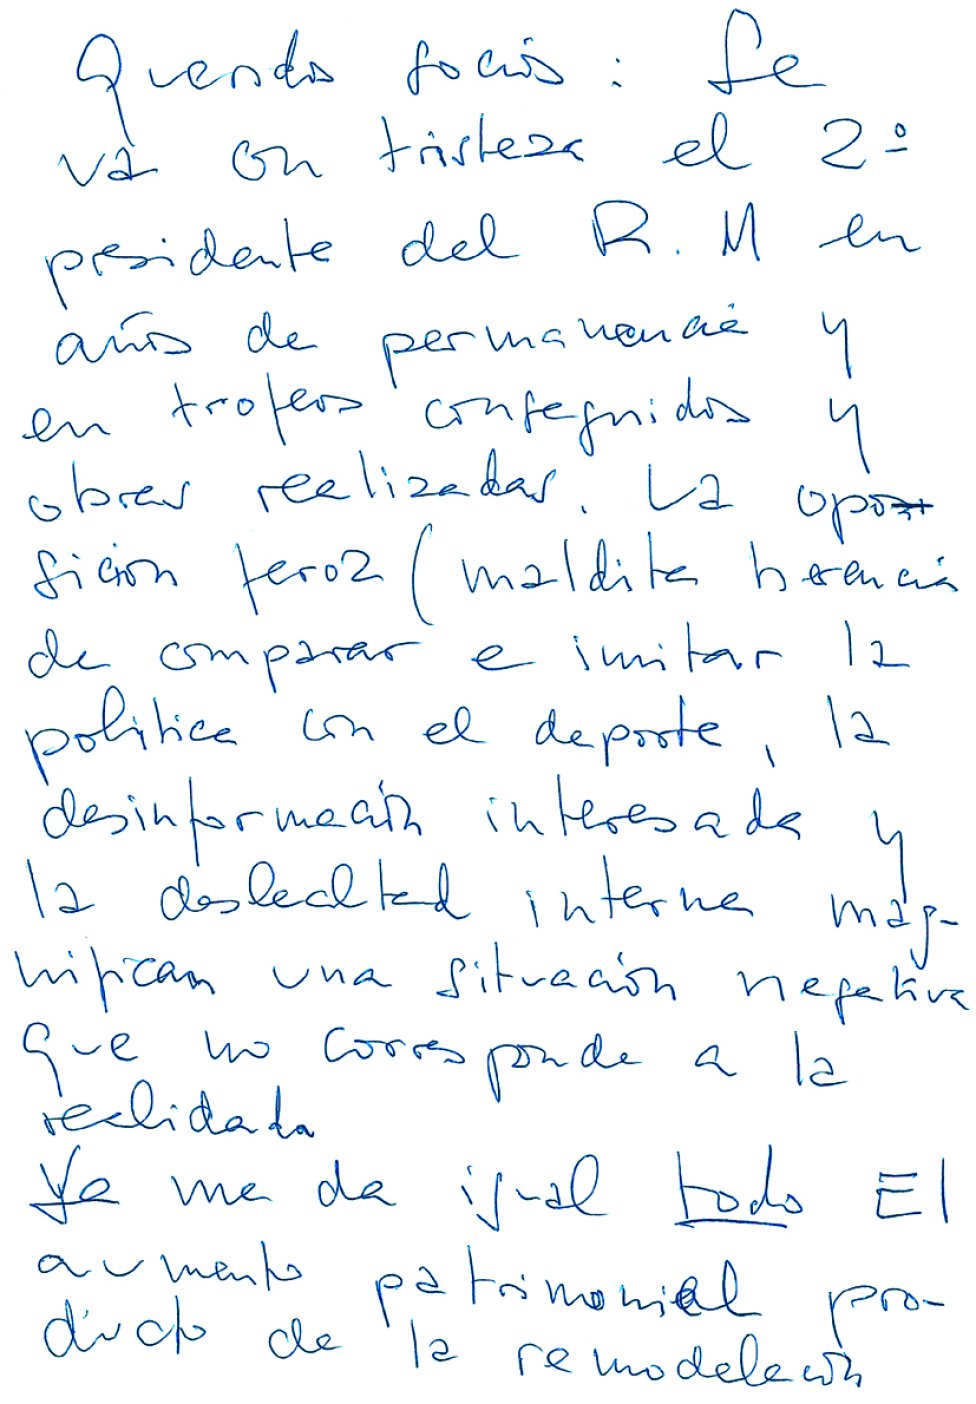 Queridos socios: Se
va con tristeza el 2º
presidente del R.M en
años de permanencia y
en trofeos conseguidos y
obras realizadas. La opo
sición feroz (maldita herencia
de comparar e imitar la
política con el deporte, la
desinformación interesada y
la deslealtad interna mag-
nifican una situación negativa
que no corresponde a la
realidad
Ya me da igual todo El
aumento patrimonial pro-
ducto de la remodelación